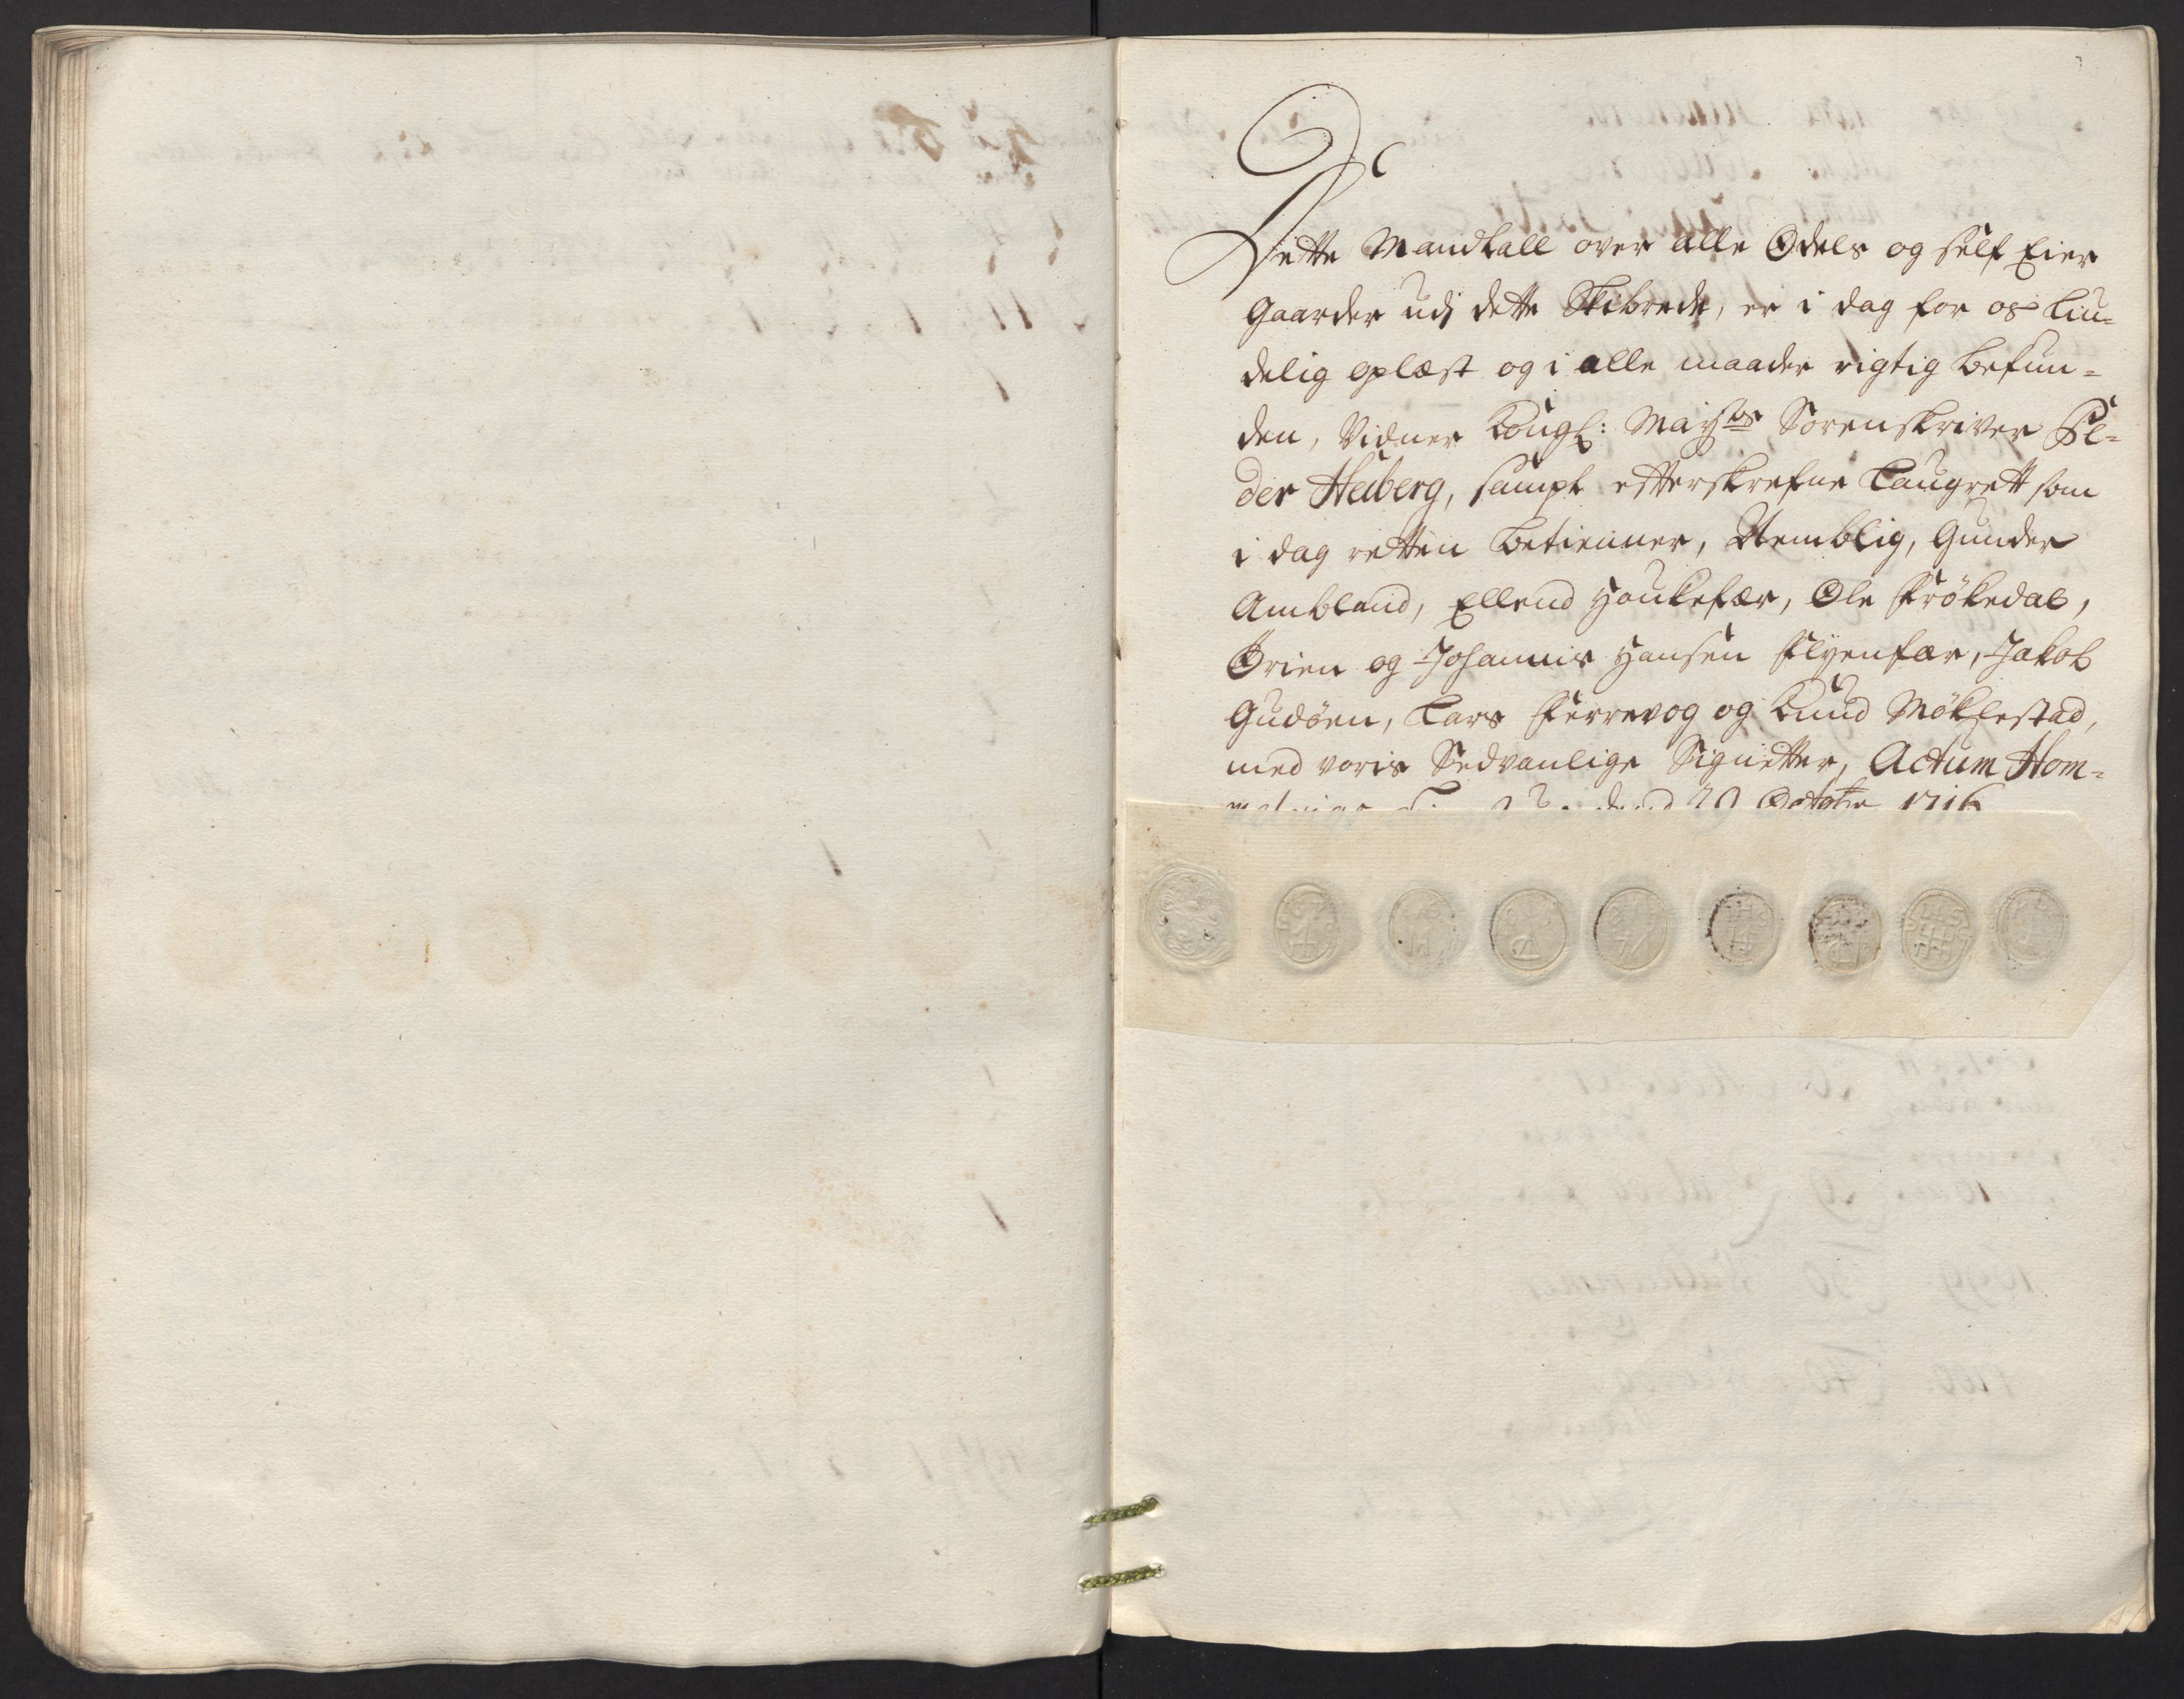 Dette Mandtall over alle Odels og self Eier
Gaarder udj dette Skibrede, er i dag for os liu-
delig oplæst og i alle maader rigtig befun-
den, Vidner Kongl: Mayts Sorenskriver Pe-
der Heiberg, sampt efterskrefne Laugrett som
i dag retten betienner, Nemblig, Gunder
Ambland, Ellend
Ole Frökedal,
Brien og Johannis Hansen
Jakob
Gudöen, Lars Ferrevog og Knud Möklestad,
med voris Sedvanlige Signetter, Actum Hom-
dend 20 Octobr 1716